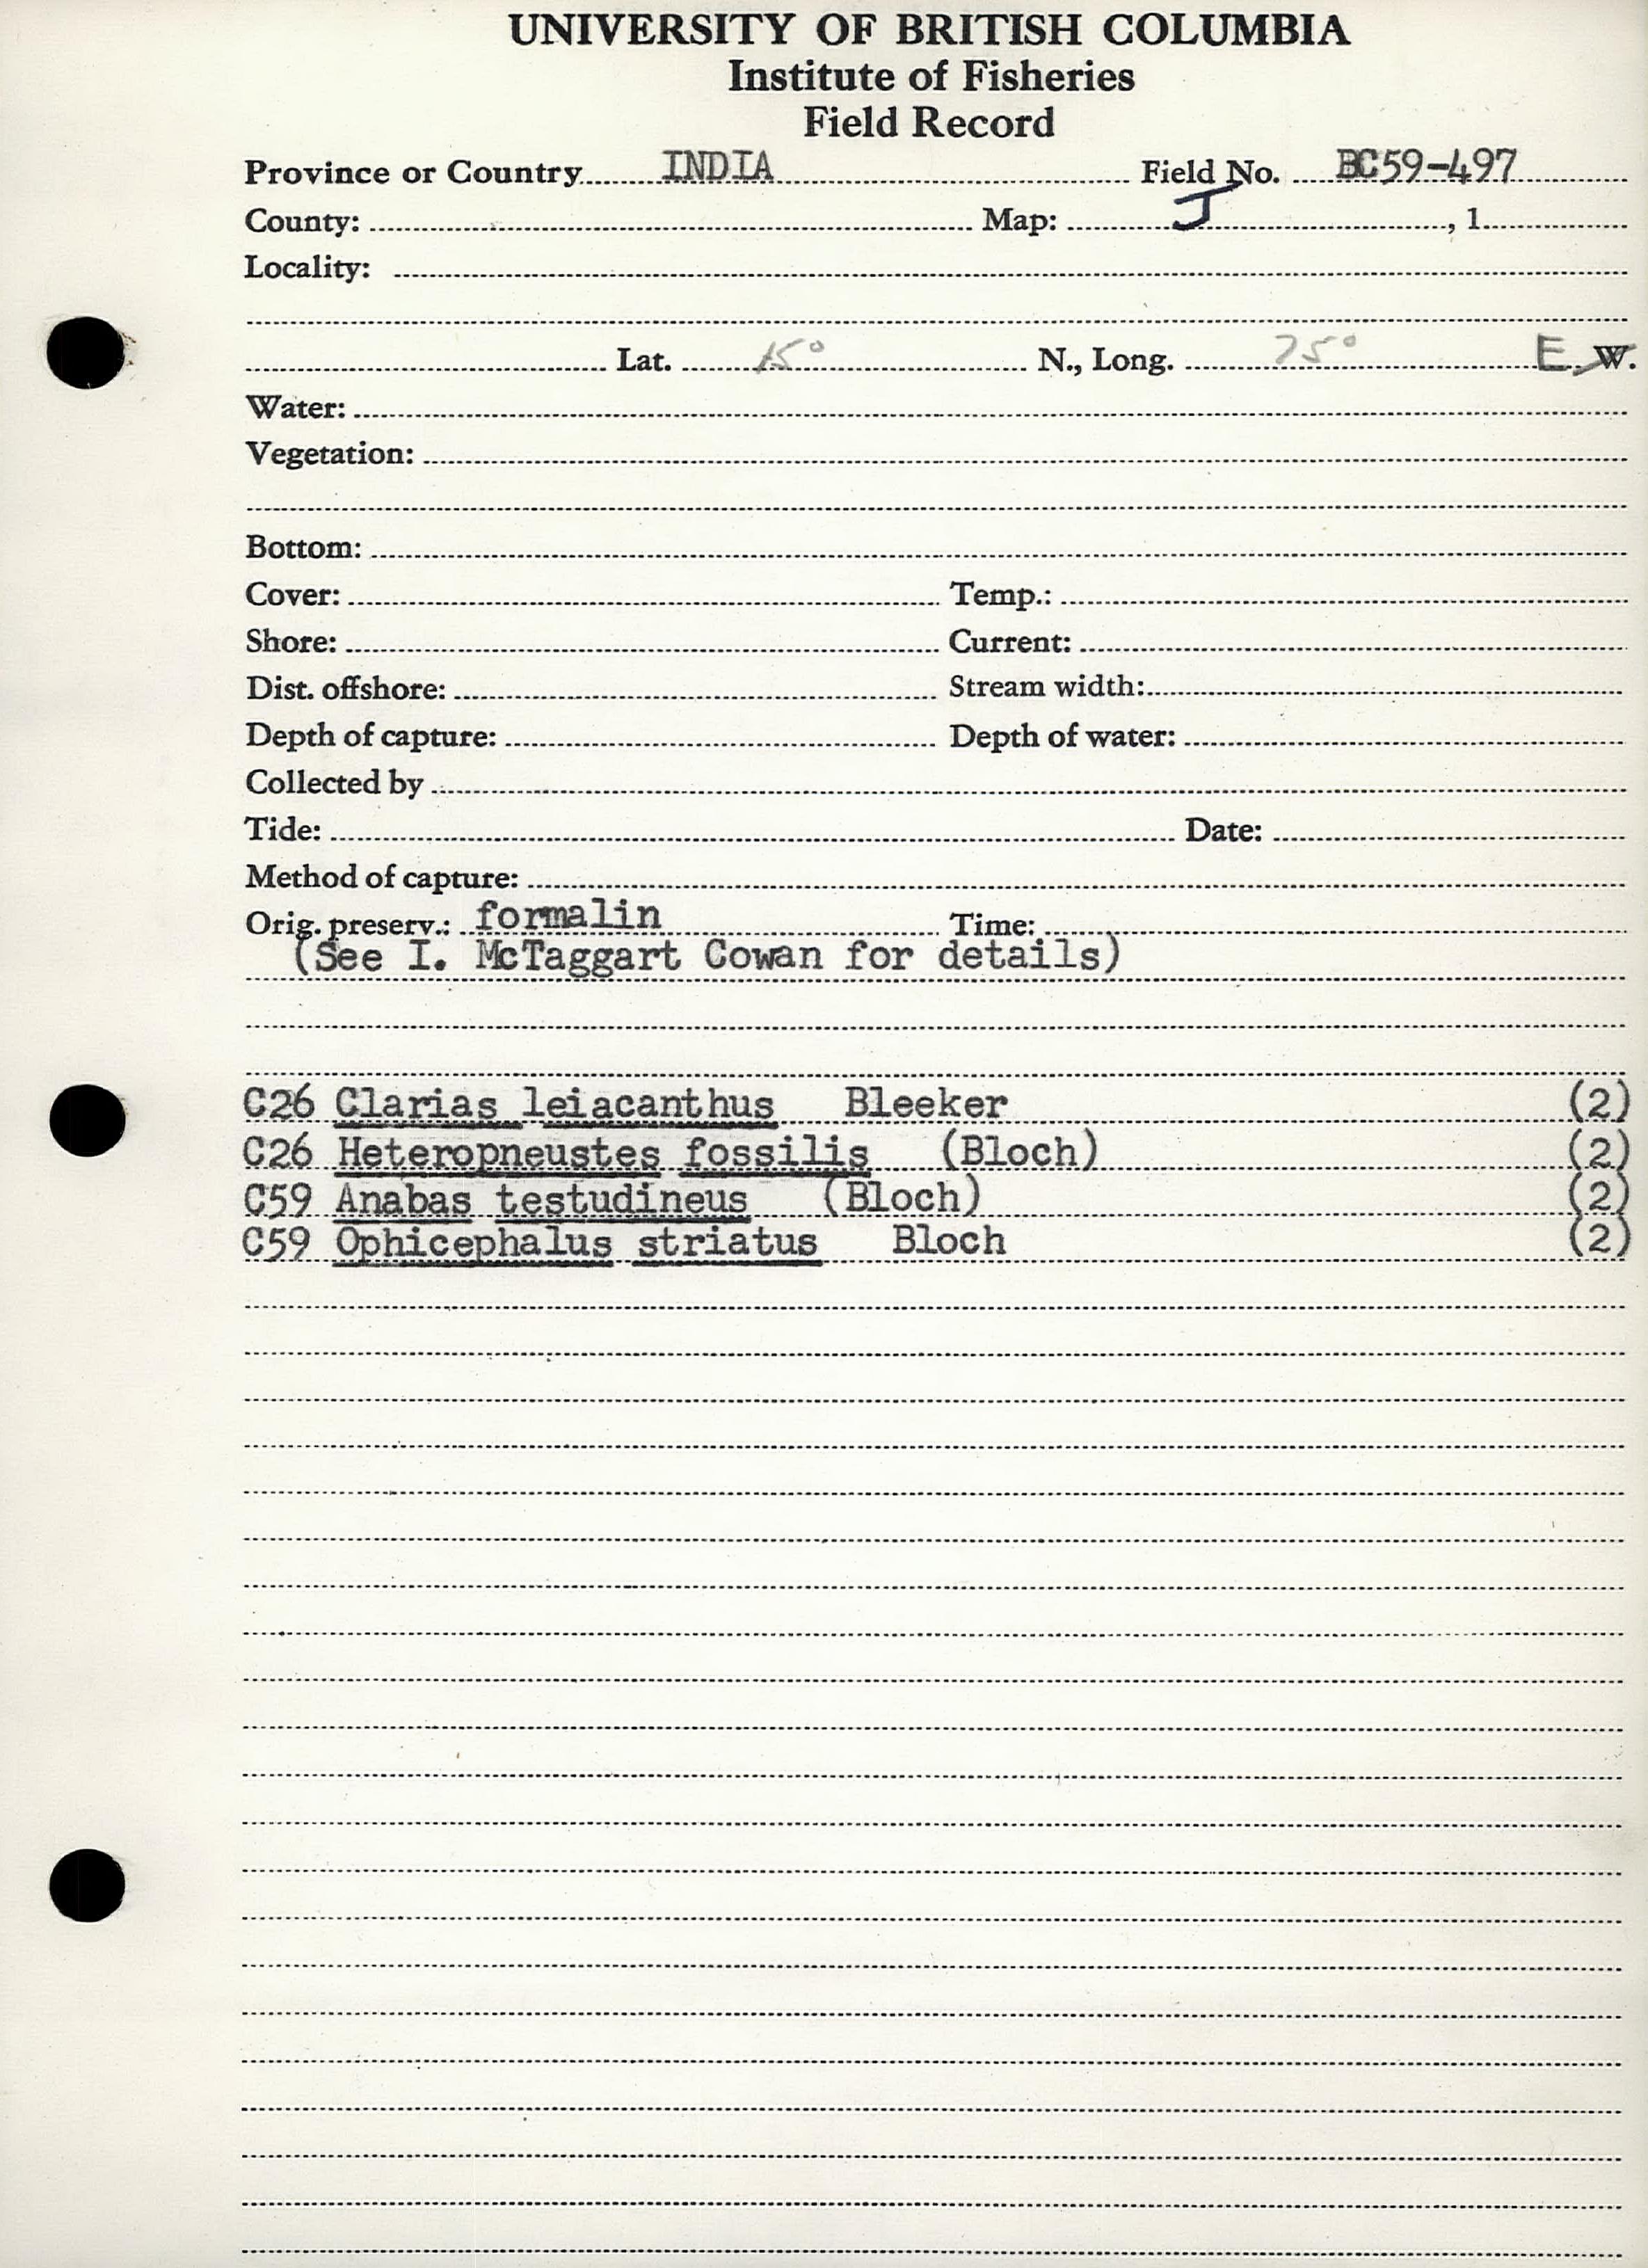 UNIVERSITY OF BRITISH COLUMBIA
Institute of Fisheries
Field Record
Province or Country INDIA Field No. BC59-497
County: Map: J , 1.
Locality:
Lat. 15° N., Long. 75° E. W.
Water:
Vegetation:
Bottom:
Cover: Temp.:
Shore: Current:
Dist. offshore: Stream width:
Depth of capture: Depth of water:
Collected by
Tide: Date:
Method of capture:
Orig. preserv.: formalin Time:
(See I. McTaggart Cowan for details)
C26 Clarias leiacanthus Bleeker (2)
C26 Heteropneustes fossilis (Bloch) (2)
C59 Anabas testudineus (Bloch) (2)
C59 Ophicephalus striatus Bloch (2)